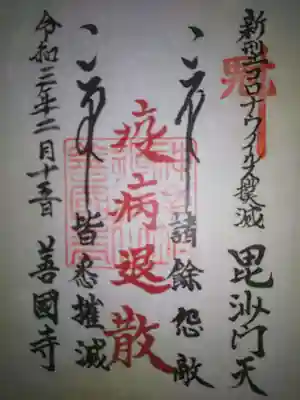 新型コロナウイルス撲滅
毘沙門天
諸餘怨敵
疫病退散
皆悉摧滅
令和二年二月十五日
善國寺